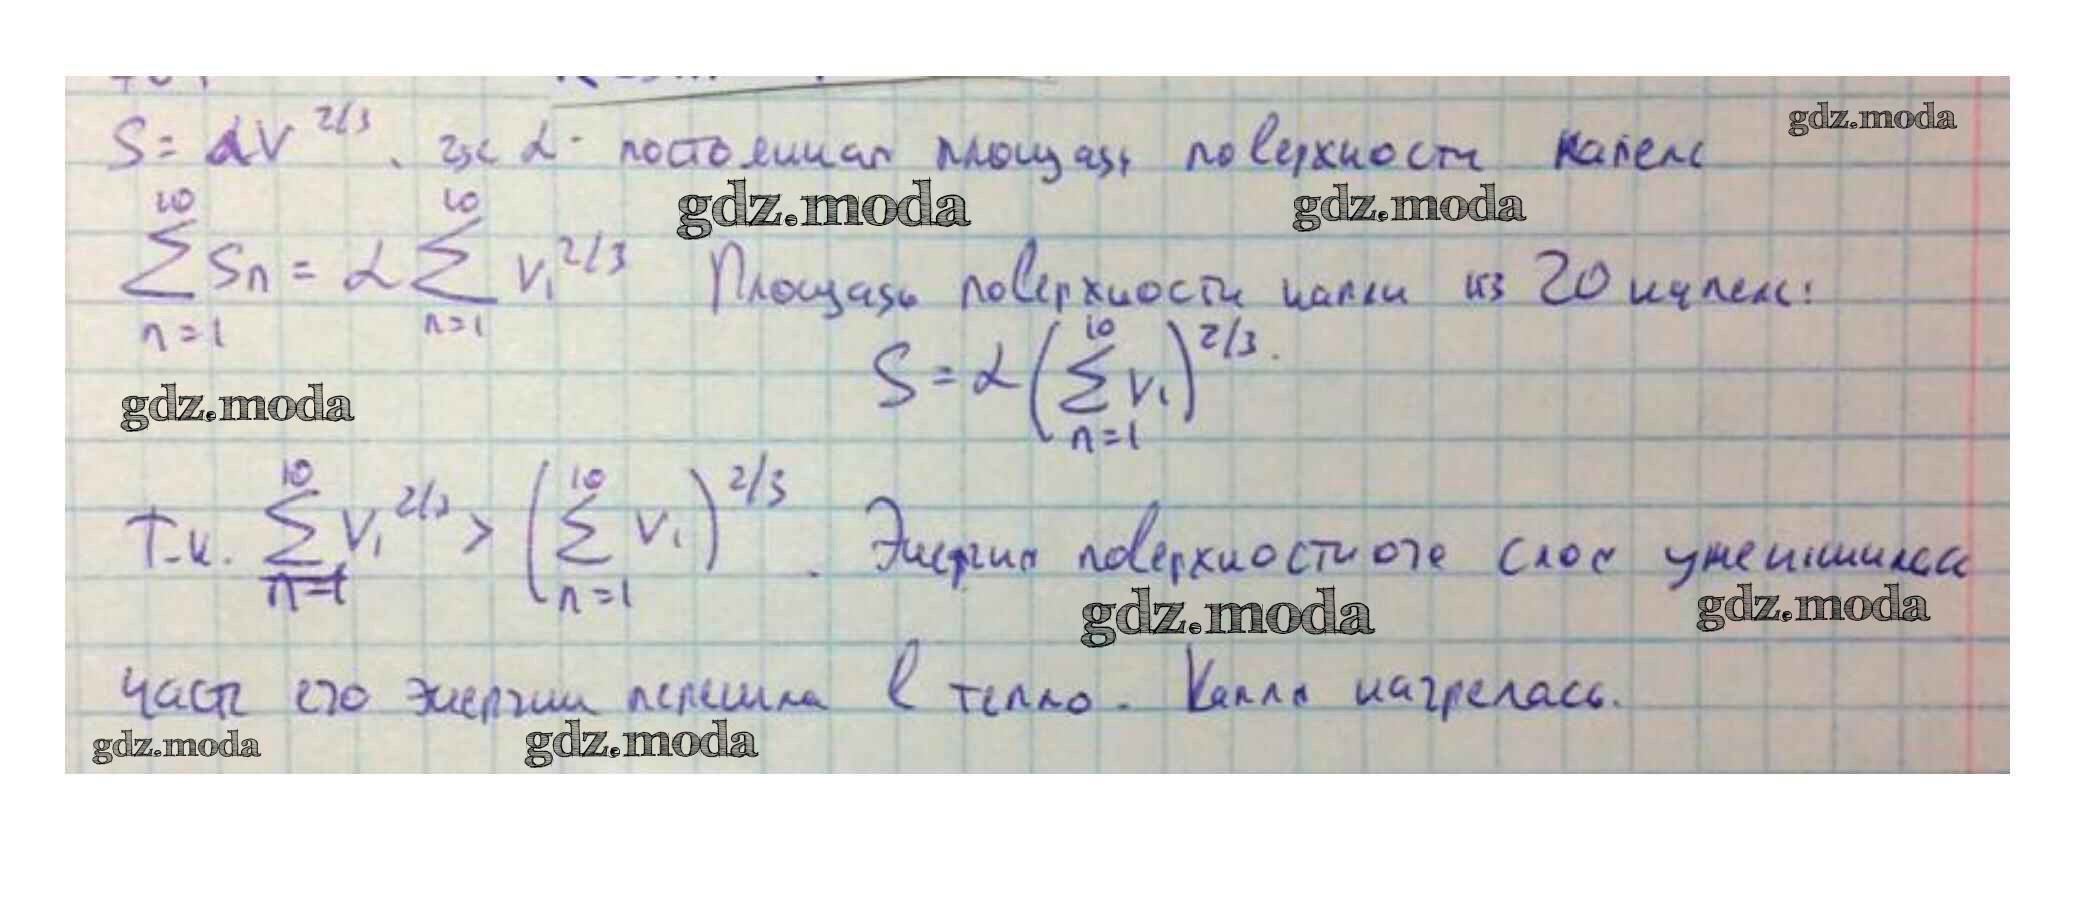 S = αV^2/3, где α - постоянная площадь поверхности капель
gdz.moda
gdz.moda gdz.moda
10 10
∑ Sn = α ∑ V₁^2/3 Площадь поверхности капли из 20 капель:
n=1 n=1
S = α(∑ V₁)^2/3.
10
n=1
gdz.moda
Т.к. ∑ V₁^2/3 > (∑ V₁)^2/3. Энергия поверхностного слоя уменьшилась
10 10
n=1 n=1
gdz.moda gdz.moda
часть его энергии перешла в тепло. Капля нагрелась.
gdz.moda gdz.moda